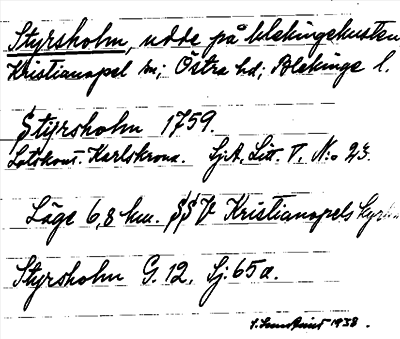 Styrsholm, udde på blekingekusten
Kristianopel sn; Östra hd; Blekinge l.
Styrsholm 1759.
Lotskont. Karlskrona. SjA, Litt. V, N:o 23.
Läge 6,8 km. SSV Kristianopels kyrka
Styrsholm G. 12, Sj. 65a.
1938.